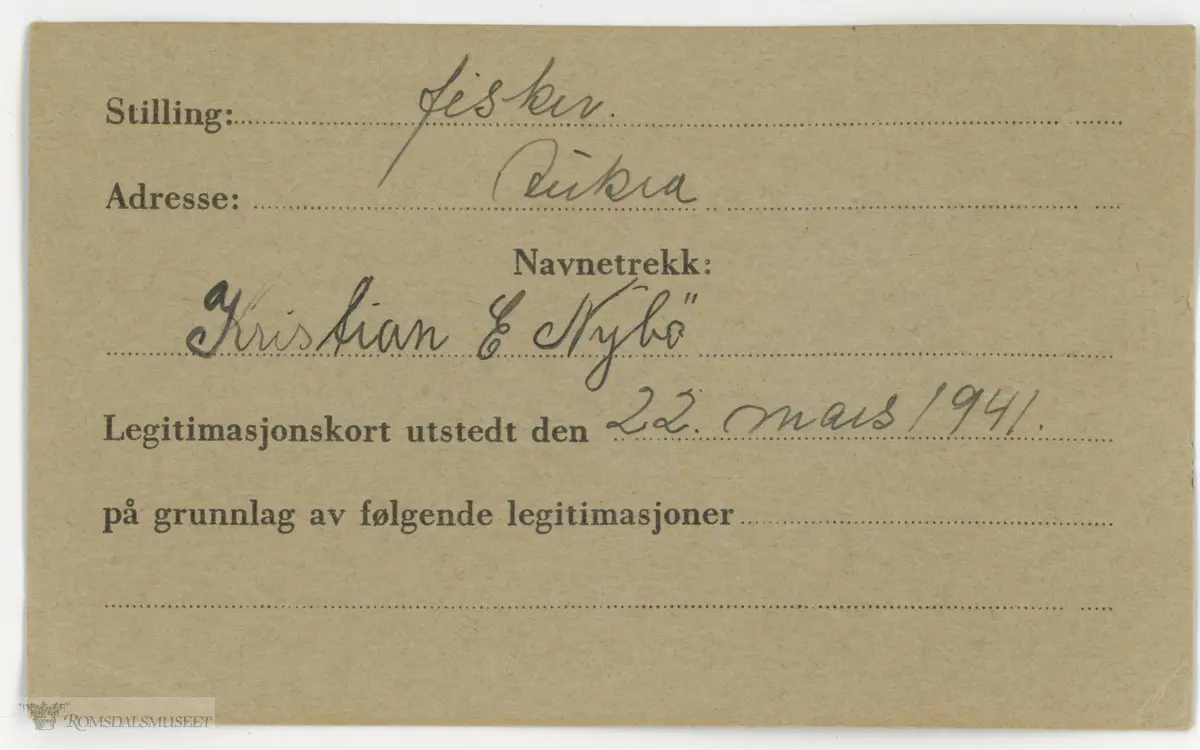 Stilling: fisker.
Adresse: Aukra
Navnetrekk:
Kristian E Nybö
Legitimasjonskort utstedt den 22. mars 1941.
på grunnlag av følgende legitimasjoner
ROMSDALSMUSEET